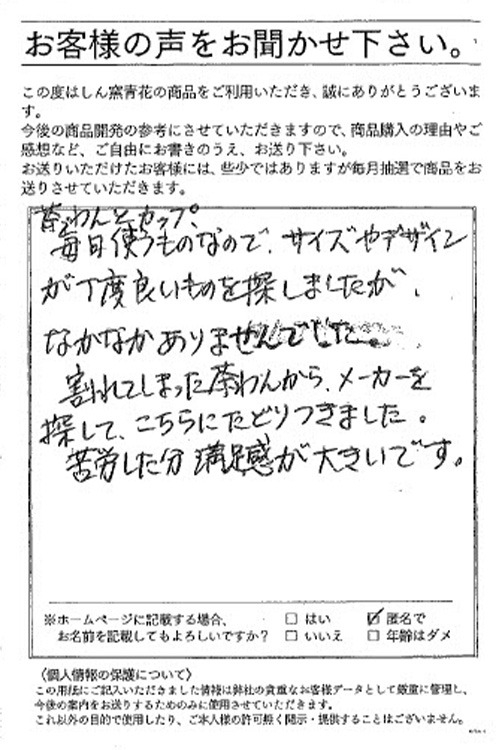 お客様の声をお聞かせ下さい。
この度はしん窯青花の商品をご利用いただき、誠にありがとうございま
す。
今後の商品開発の参考にさせていただきますので、商品購入の理由やご
感想など、ご自由にお書きのうえ、お送り下さい。
お送りいただけたお客様には、些少ではありますが毎月抽選で商品をお
送りさせていただきます。
茶わんとカップ、
毎日使うものなので、サイズやデザイン
が丁度良いものを探しましたが、
なかなかありませんでした
割れてしまった茶わんから、メーカーを
探して、こちらにたどりつきました。
苦労した分満足感が大きいです。
※ホームページに記載する場合、 □ はい ☑ 匿名で
お名前を記載してもよろしいですか? □ いいえ □ 年齢はダメ
〈個人情報の保護について〉
この用紙にご記入いただきました情報は弊社の貴重なお客様データとして厳重に管理し、
今後の案内をお送りするためのみに使用させていただきます。
これ以外の目的で使用したり、ご本人様の許可無く開示・提供することはございません。